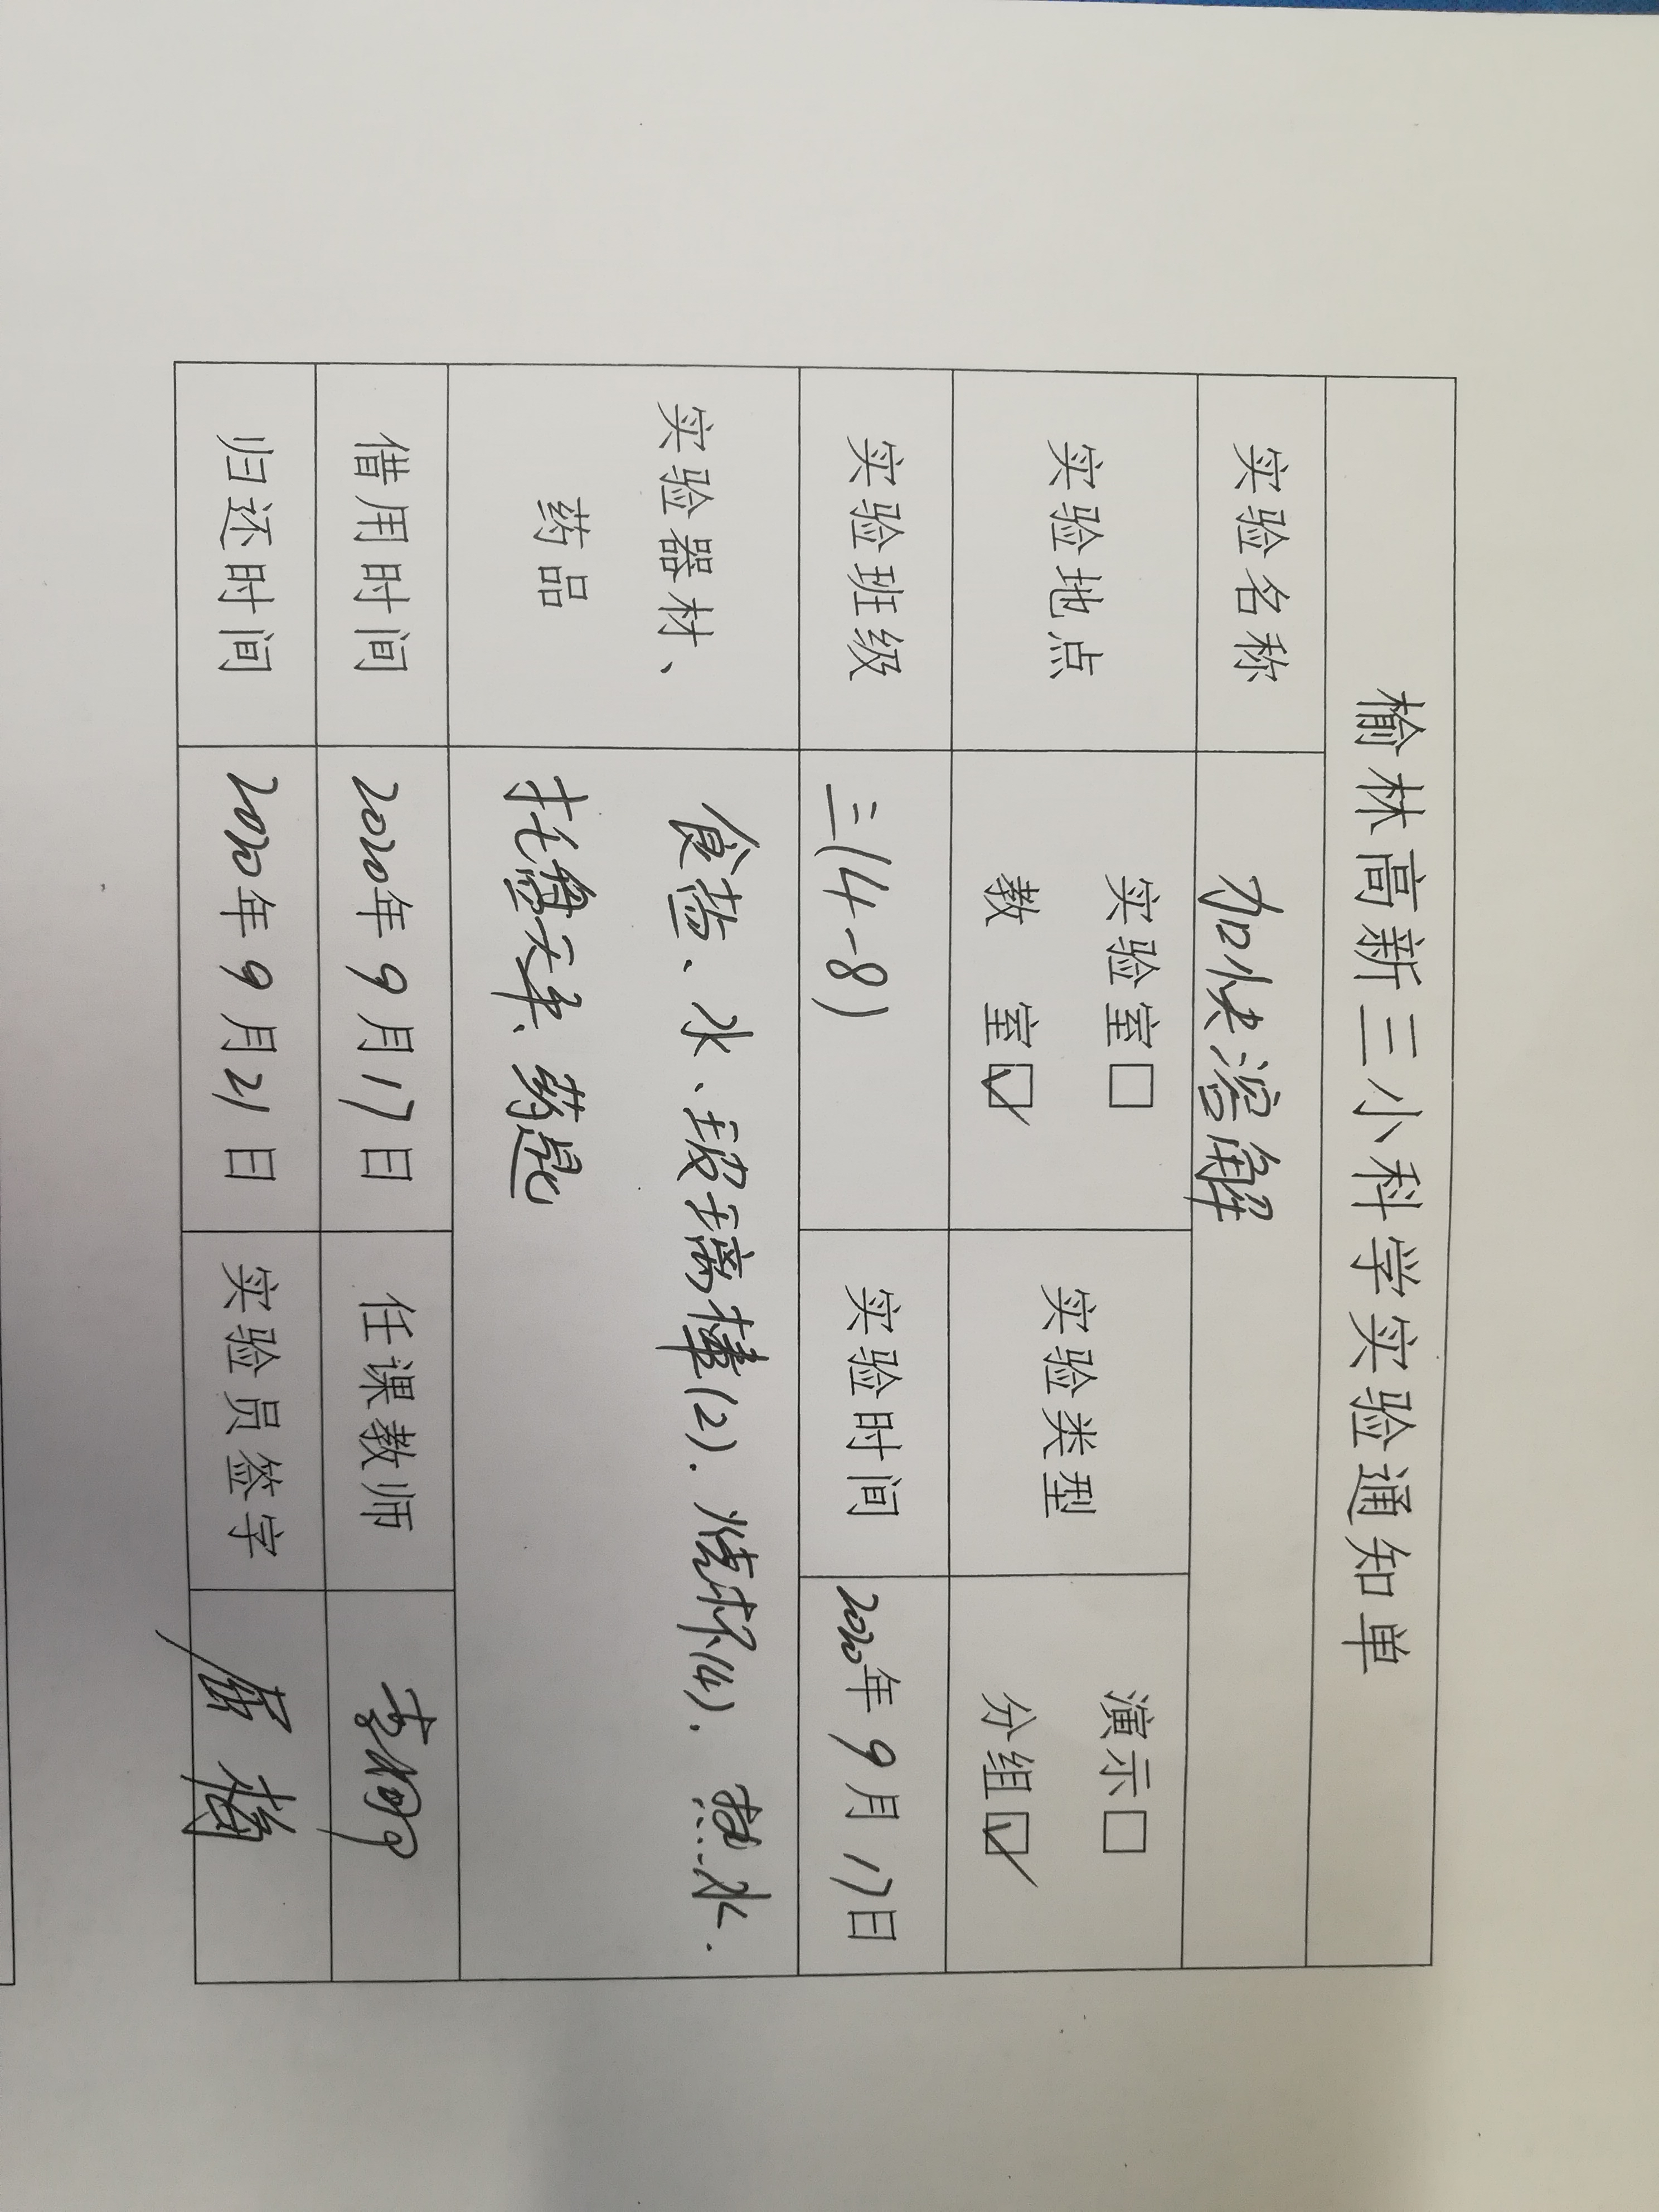 榆林高新三小科学实验通知单
实验名称 加快溶解
实验地点 实验室□ 教 室☑ 实验类型 演示□ 分组☑
实验班级 三(4-8) 实验时间 2020年9月17日
实验器材、药品 食盐、水、玻璃棒(2).烧杯(4).热水.
托盘天平、药匙
借用时间 2020年9月17日 任课教师
归还时间 2020年9月21日 实验员签字